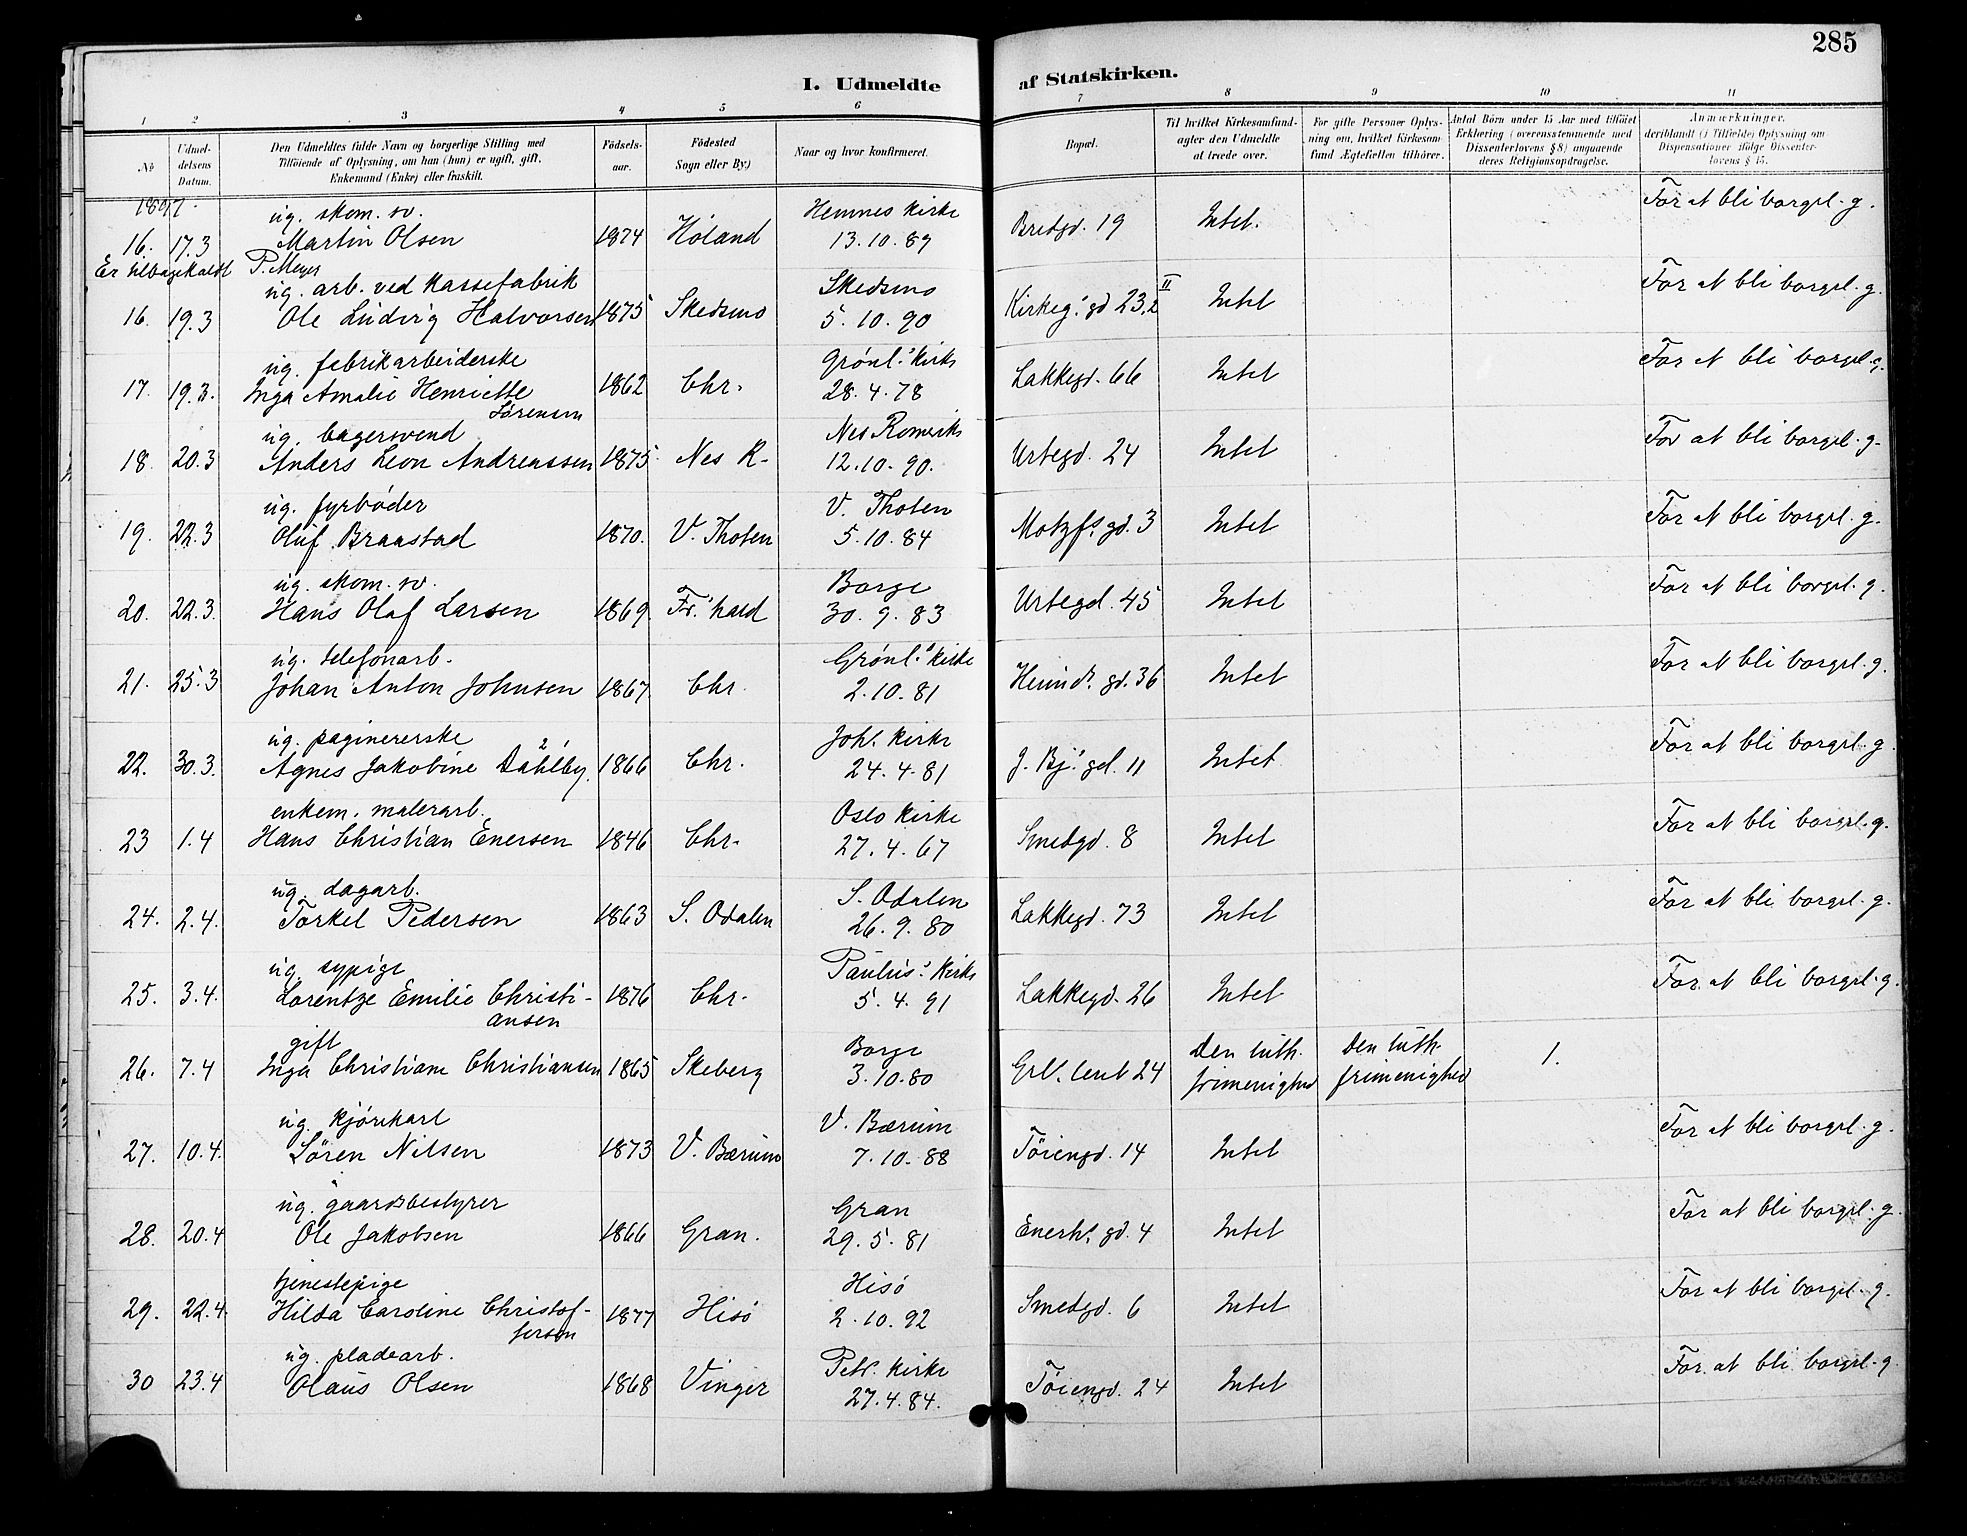 285
I. Udmeldte af Statskirken.
1 2 3 4 5 6 7 8 9 10 11
No
Udmeldelsens Datum.
Den Udmeldtes fulde Navn og borgerlige Stilling med Tilføiende af Oplysning, om han (hun) er ugift, gift, Enkemand (Enke) eller fraskilt.
Fødselsaar.
Fødested Sogn eller By.)
Naar og hvor konfirmeret.
Bopæl.
Til hvilket Kirkesamfund agter den Udmeldte at træde over.
For gifte Personer Oplysning om, hvilket Kirkesamfund Ægtefællen tilhører.
Antal Börn under 15 Aar med tilföiet Erklæring (overensstemmende med Dissenterlovens § 8) angaaende deres Religionsopdragelse.
Anmærkninger. deriblandt (i Tilfælde) Oplysning om Dispensationer ifølge Dissenterlovens § 15.
1897.
ug. skom. sv. Hemnes Kirke For at bli borgel. g.
16. 17.3 Martin Olsen 1874 Høland 13.10.89 Bredgd. 19 Intet.
Er tilbagekaldt P. Meyer
ug. arb. ved Kassefabrik Skedsmo II For at bli borgel. g.
16. 19.3 Ole Ludvig Halvorsen 1875 Skedsmo 5.10.90 Kirkeg.' gd 23,2 Intet
ug. fabrikarbeiderske Grønl.' Kirke For at bli borgel. g.
17. 19.3. Inga Amalie Henriette 1862 Chr. 28.4.78 Lakkegd. 66 Intet
Sørensen
ug. bagersvend Nes Romerike For at bli borgel. g.
18. 20.3 Anders Leon Andreassen 1875 Nes R. 12.10.90. Urtegd. 24 Intet
ug. fyrbøder V. Thoten For at bli borgel. g.
19. 22.3 Oluf Braastad 1870. V. Thoten 5.10.84 Motzf.s gd. 3 Intet
ug. skom. sv. Borge For at bli borgel. g.
20. 22.3. Hans Olaf Larsen 1869. Fr.'hald 30.9.83 Urtegd. 45 Intet
ug. telefonarb. Grønl.' Kirke For at bli borgel. g.
21. 25.3 Johan Anton Johnsen 1867 Chr. 2.10.81 Heimd. gd. 36 Intet
ug. paginererske Joh. Kirke For at bli borgel. g
22. 30.3. Agnes Jakobine Dahlby. 1866 Chr. 24.4.81 J. Bj.' gd. 11 Intet
enkem. malerarb. Oslo Kirke For at bli borgel. g.
23 1.4 Hans Christian Enersen 1846 Chr. 27.4.67 Smedgd. 8 Intet
ug. dagarb. S. Odalen For at bli borgel. g.
24. 2.4. Torkel Pedersen 1863 S. Odalen 26.9.80 Lakkegd. 73 Intet
ug. sypige Paulus' Kirke For at bli borgel. g.
25. 3.4. Lorentze Emilie Christi- 1876 Chr. 5.4.91 Lakkegd. 26 Intet
ansen
gift Borge den luth. Den luth.
26. 7.4 Inga Christiane Christiansen 1865 Skeberg 3.10.80 Grl. leret 24 frimenighed frimenighed 1.
ug. kjørekarl V. Bærum For at bli borgel. g.
27. 10.4. Søren Nilsen 1873 V. Bærum 7.10.88 Tøiengd. 14 Intet
ug. gaardsbestyrer Gran For at bli borgel. g.
28. 20.4 Ole Jakobsen 1866 Gran. 29.5.81 Enerh. gd. 4 Intet
tjenestepige Hisø For at bli borgel. g.
29. 22.4. Hilda Caroline Christof- 1877 Hisø 2.10.92 Smedgd. 6 Intet
fersen
ug. pladearb. Petr. Kirke For at bli borgel. g
30 23.4 Olaus Olsen 1868 Vinger 27.4.84. Tøiengd. 24 Intet